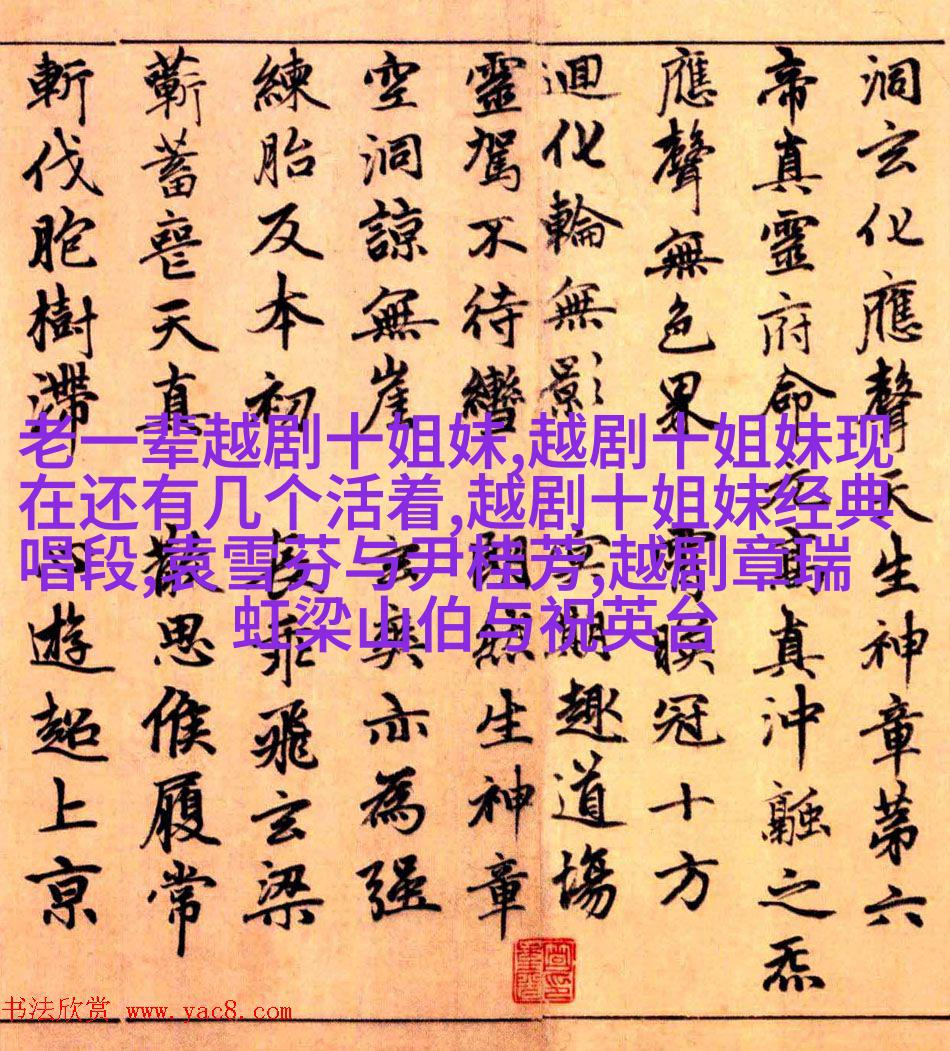 老一辈越剧十姐妹,越剧十姐妹现
在还有几个活着,越剧十姐妹经典
唱段,袁雪芬与尹桂芳,越剧章瑞
虹梁山伯与祝英台
洞玄化應聲天生神章第六
帝真靈府命高真沖融之炁
應聲無色界霄映冠十方
迴化輪無影冥期趣道場
靈駕不待轡然生神章
空洞諒無崖玄爽亦為强
練胎反本初長乘飛玄梁
蘄蓄喪天真散思候履常
斬伐胞樹滯遊超上京
书法欣赏 www.yac8.com